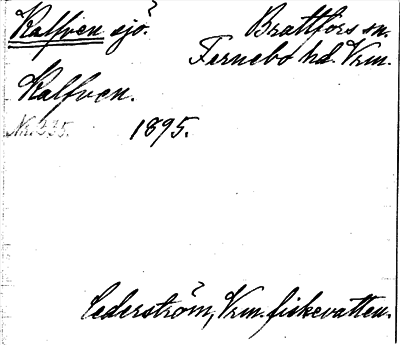 Kalfven sjö. Brattfors sn.
Fernebo hd. Vrm.
Kalfven.
Nr. 235. 1895.
Cederström, Vrm. fiskevatten.